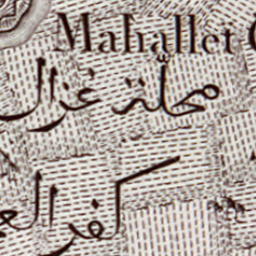 Mahallet
محلّة غزال
كفر الع